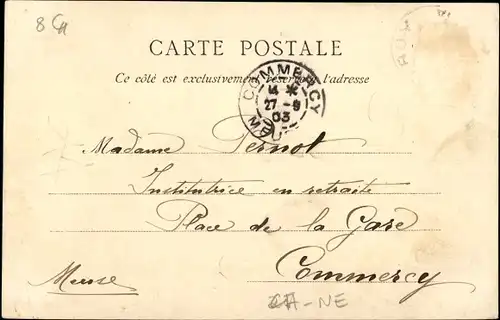 8 CH
CARTE POSTALE
Ce côté est exclusivement réservé à l'adresse
COMMERCY
27-9
03
Madame Pernot
Institutrice en retraite
Place de la Gare
Commercy
Meuse
-NE